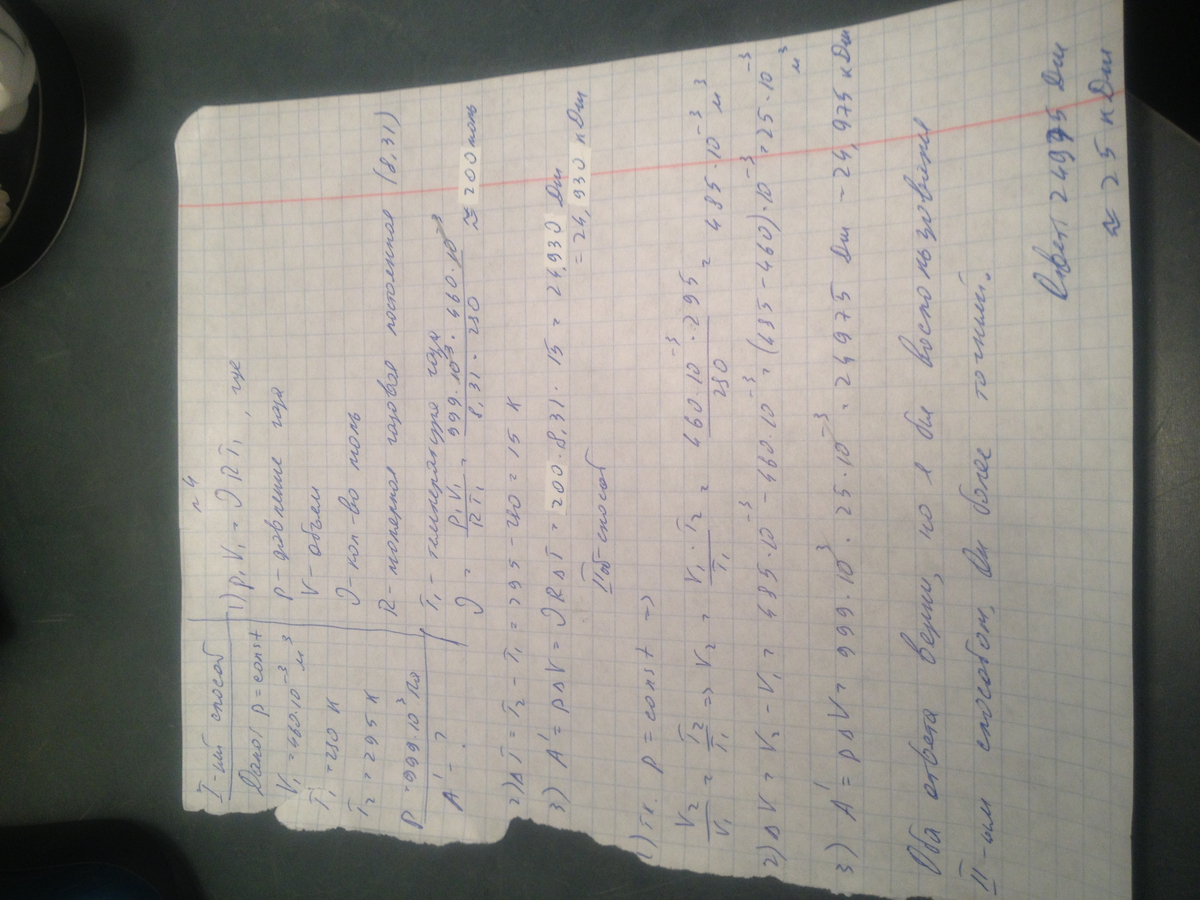 №4
I-ый способ
Дано: p = const
V₁ = 460·10⁻³ м³
T₁ = 280 К
T₂ = 295 К
P = 999·10³ Па
A' - ?
1) P₁V₁ = νRT₁, где
P - давление газа
V - объём
ν - кол-во моль
R - молярная газовая постоянная (8,31)
T₁ - температура газа
ν = P₁V₁/RT₁ = 999·10³·460·10⁻³/8,31·280 ≈ 200 моль
2) ΔT = T₂ - T₁ = 295 - 280 = 15 К
3) A' = pΔV = νRΔT = 200·8,31·15 = 24,930 Дж
= 24,930 кДж
II ой способ
1) Т.к. P = const =>
V₂/V₁ = T₂/T₁ => V₂ = V₁·T₂/T₁ = 460·10⁻³·295/280 = 485·10⁻³ м³
2) ΔV = V₂ - V₁ = 485·10⁻³ - 460·10⁻³ = (485 - 460)·10⁻³ = 25·10⁻³ м³
3) A' = pΔV = 999·10³·25·10⁻³ = 24975 Дж - 24,975 кДж
Оба ответа верны, но я бы воспользовался
II-ым способом, он более точный.
Ответ: 24975 Дж
≈ 25 кДж